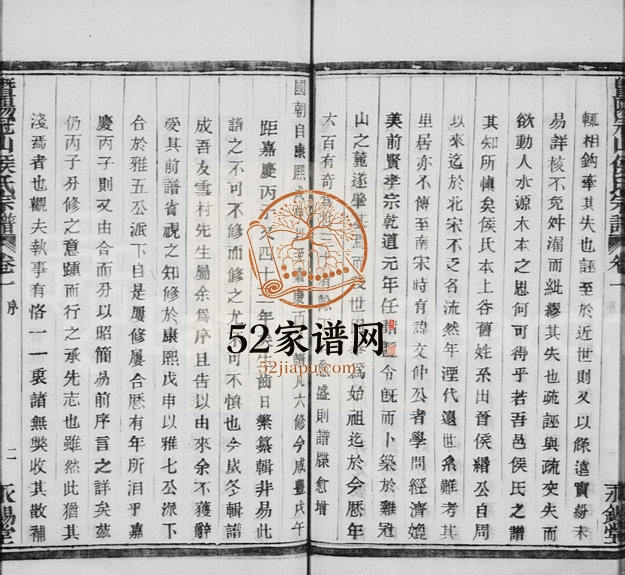 暨陽冠山侯氏宗譜
卷一
永錫堂
輒相鈎牽其失也誣至於近世則又以餘遠實紛未
易詳核不免舛漏而紕繆其失也疏誣與疏交失而
欲動人水源木本之思何可得乎若吾邑侯氏之譜
其知所慎矣侯氏本上谷舊姓系出晉侯緡公自周
來以迄於北宋不乏名流然年湮代遠世系難考其
里居亦不傳至南宋時有諱文仲公者學問經濟媲
美前賢孝宗乾道元年任 令既而卜築於雞冠
山之麓遂肇 焉而後世 爲始祖迄於今歷年
六百有奇 愈盛則譜牒愈增
國朝自康熙 嘉慶丙子譜凡六修今咸豐戊午
距嘉慶丙子又四十二年 生齒日繁纂輯非易此
譜之不可不修而修之尤 可不慎也今歲冬輯譜
成吾友雪村先生屬余爲序且告以由來余不獲辭
受其前譜省視之知修於康熙戊申以雅七公派下
合於雅五公派下自是屢修屢合歷有年所洎乎嘉
慶丙子則又由合而分以昭簡易前序言之詳矣茲
仍丙子分修之意踵而行之承先志也雖然此猶其
淺焉者也觀夫執事有恪一一裒諸無獘收其散補
暨陽冠山侯氏宗譜
卷一
序
二
永錫堂
52家谱网
52jiapu.com